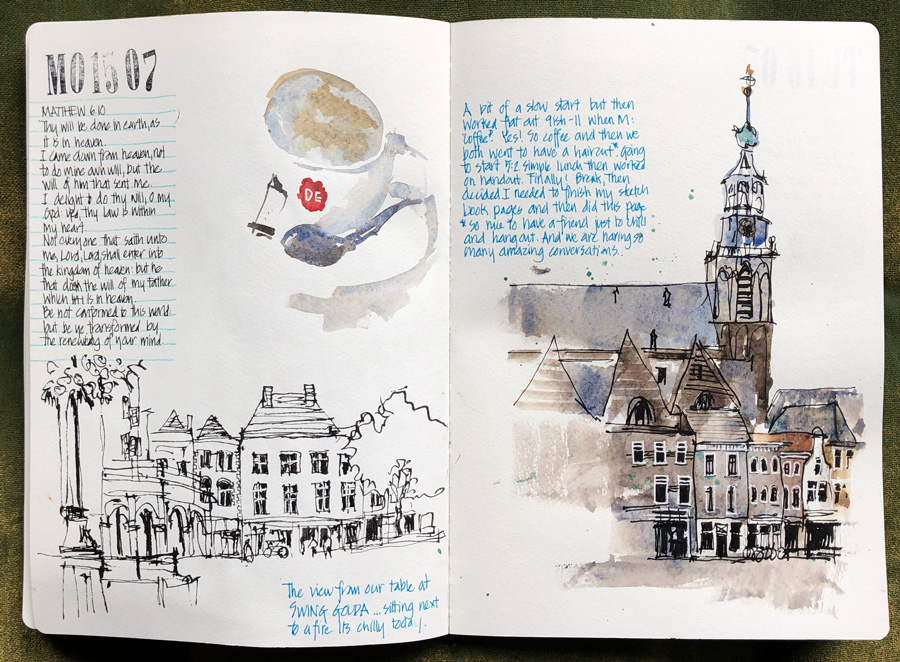 MO1507
MATTHEW 6:10
Thy will be done in earth, as
it is in heaven.
I came down from heaven, not
to do mine own will, but the
will of him that sent me.
I delight to do thy will, O my
God: yea, thy law is within
my heart.
Not every one that saith unto
me, Lord, Lord, shall enter into
the kingdom of heaven: but he
that doeth the will of my father
which is in heaven.
Be not conformed to this world:
but be ye transformed by
the renewing of your mind.
DE
The view from our table at
SWING GOUDA ... sitting next
to a fire Its chilly today.
A bit of a slow start but then
worked flat out 9ish-11 when M:
"coffee?" Yes! So coffee and then we
both went to have a haircut* going
to start 5:2 simple lunch then worked
on handout. Finally! Break, then
decided I needed to finish my sketch
book pages and then did this page
* so nice to have a friend just to chill
and hang out. And we are having so
many amazing conversations.